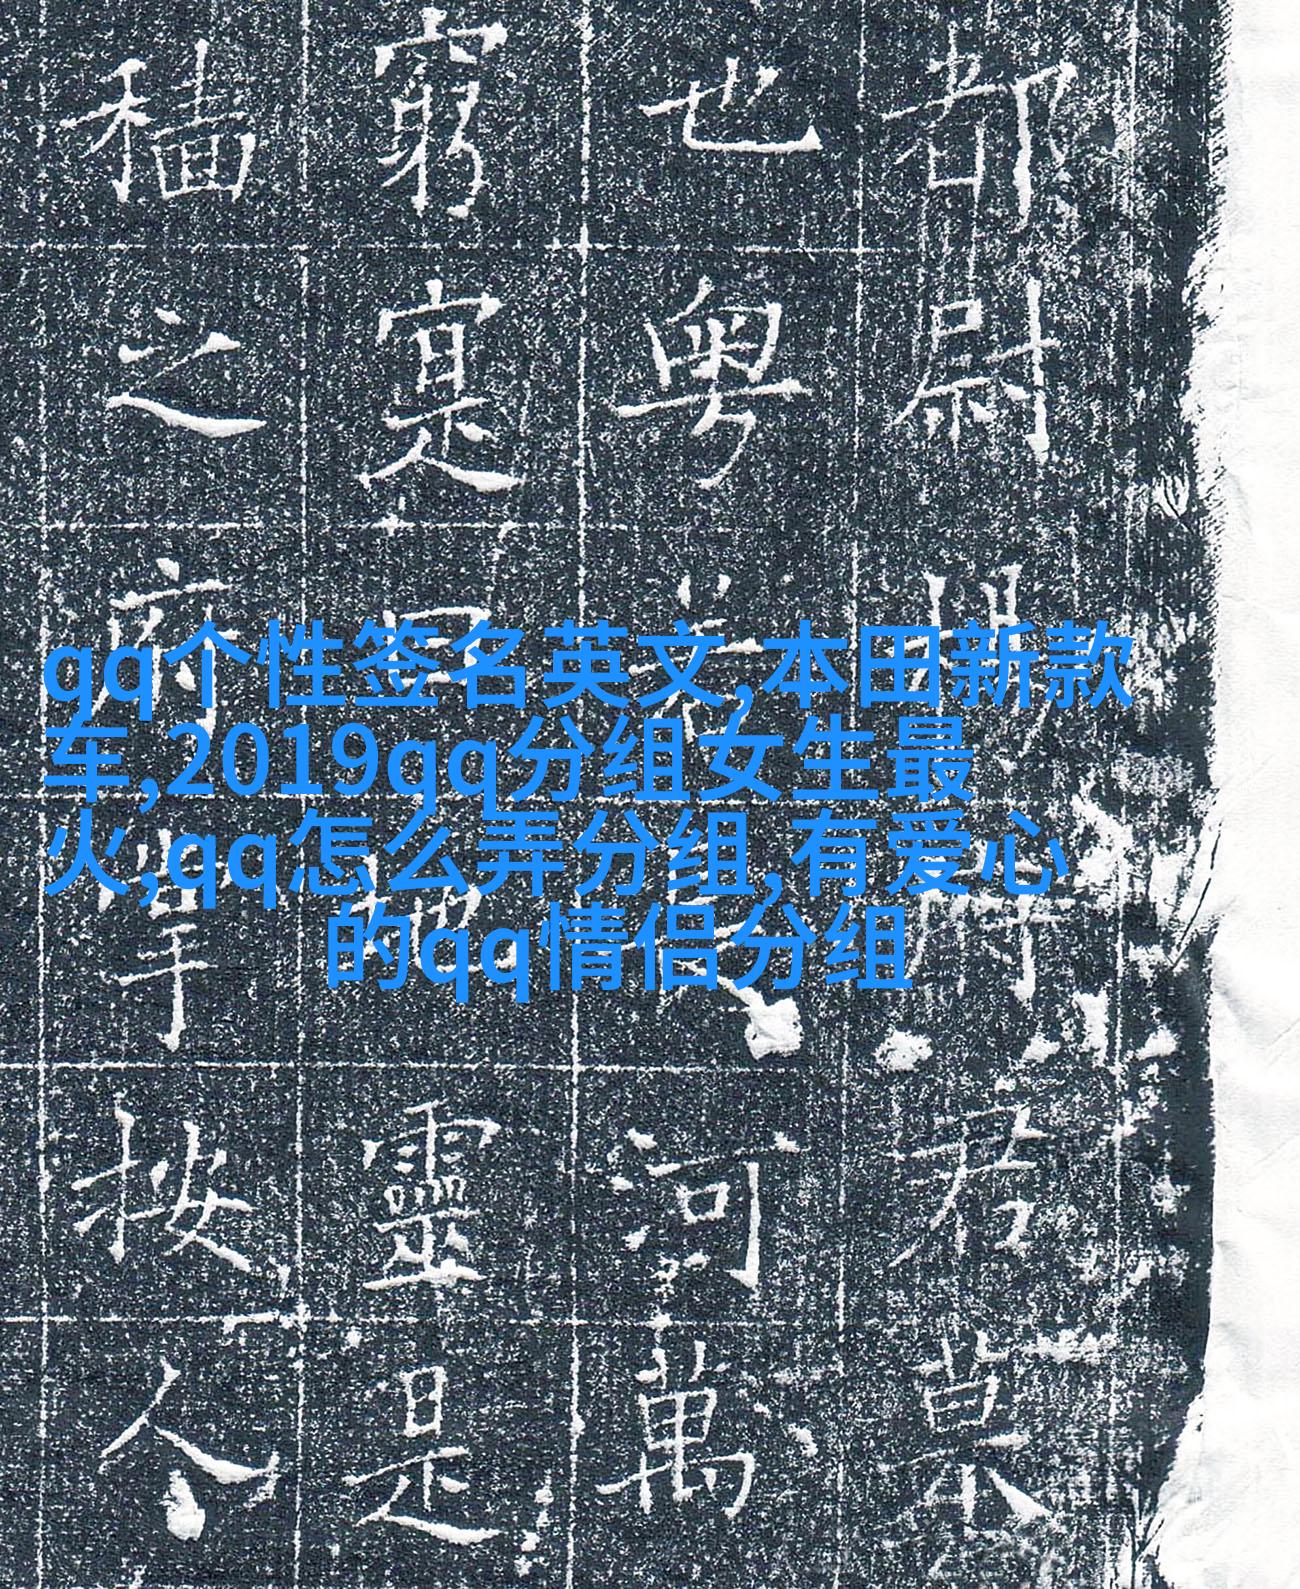 qq个性签名英文,本田新款
车,2019qq分组女生最
火,qq怎么弄分组,有爱心
的qq情侣分组
都尉君
也粤河萬
窮寔靈是
穑之府按人